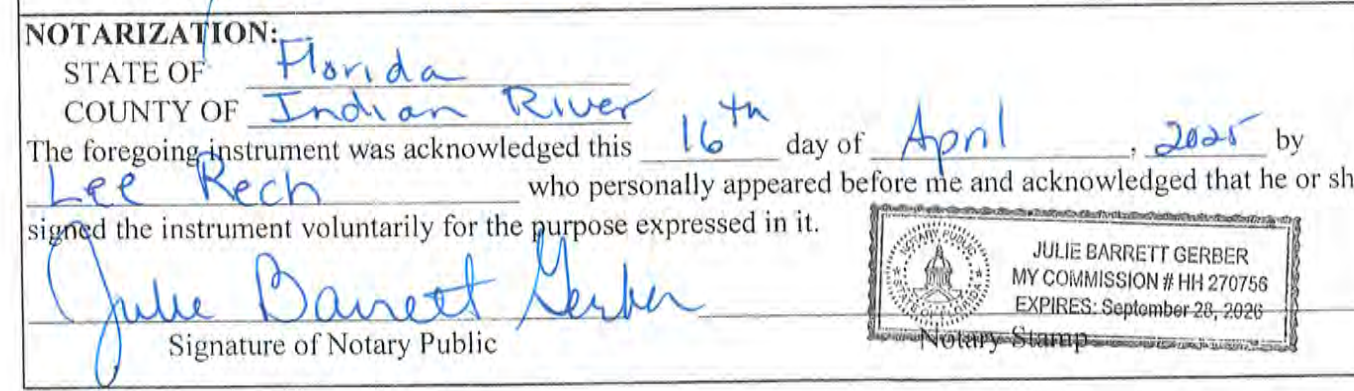 NOTARIZATION:
STATE OF Florida
COUNTY OF Indian River
The foregoing instrument was acknowledged this 16th day of April, 2025 by
Lee Rech who personally appeared before me and acknowledged that he or sh
signed the instrument voluntarily for the purpose expressed in it.
Julie Barrett Gerber
Signature of Notary Public
NOTARY PUBLIC
STATE OF FLORIDA
JULIE BARRETT GERBER
MY COMMISSION # HH 270756
EXPIRES: September 28, 2026
Notary Stamp